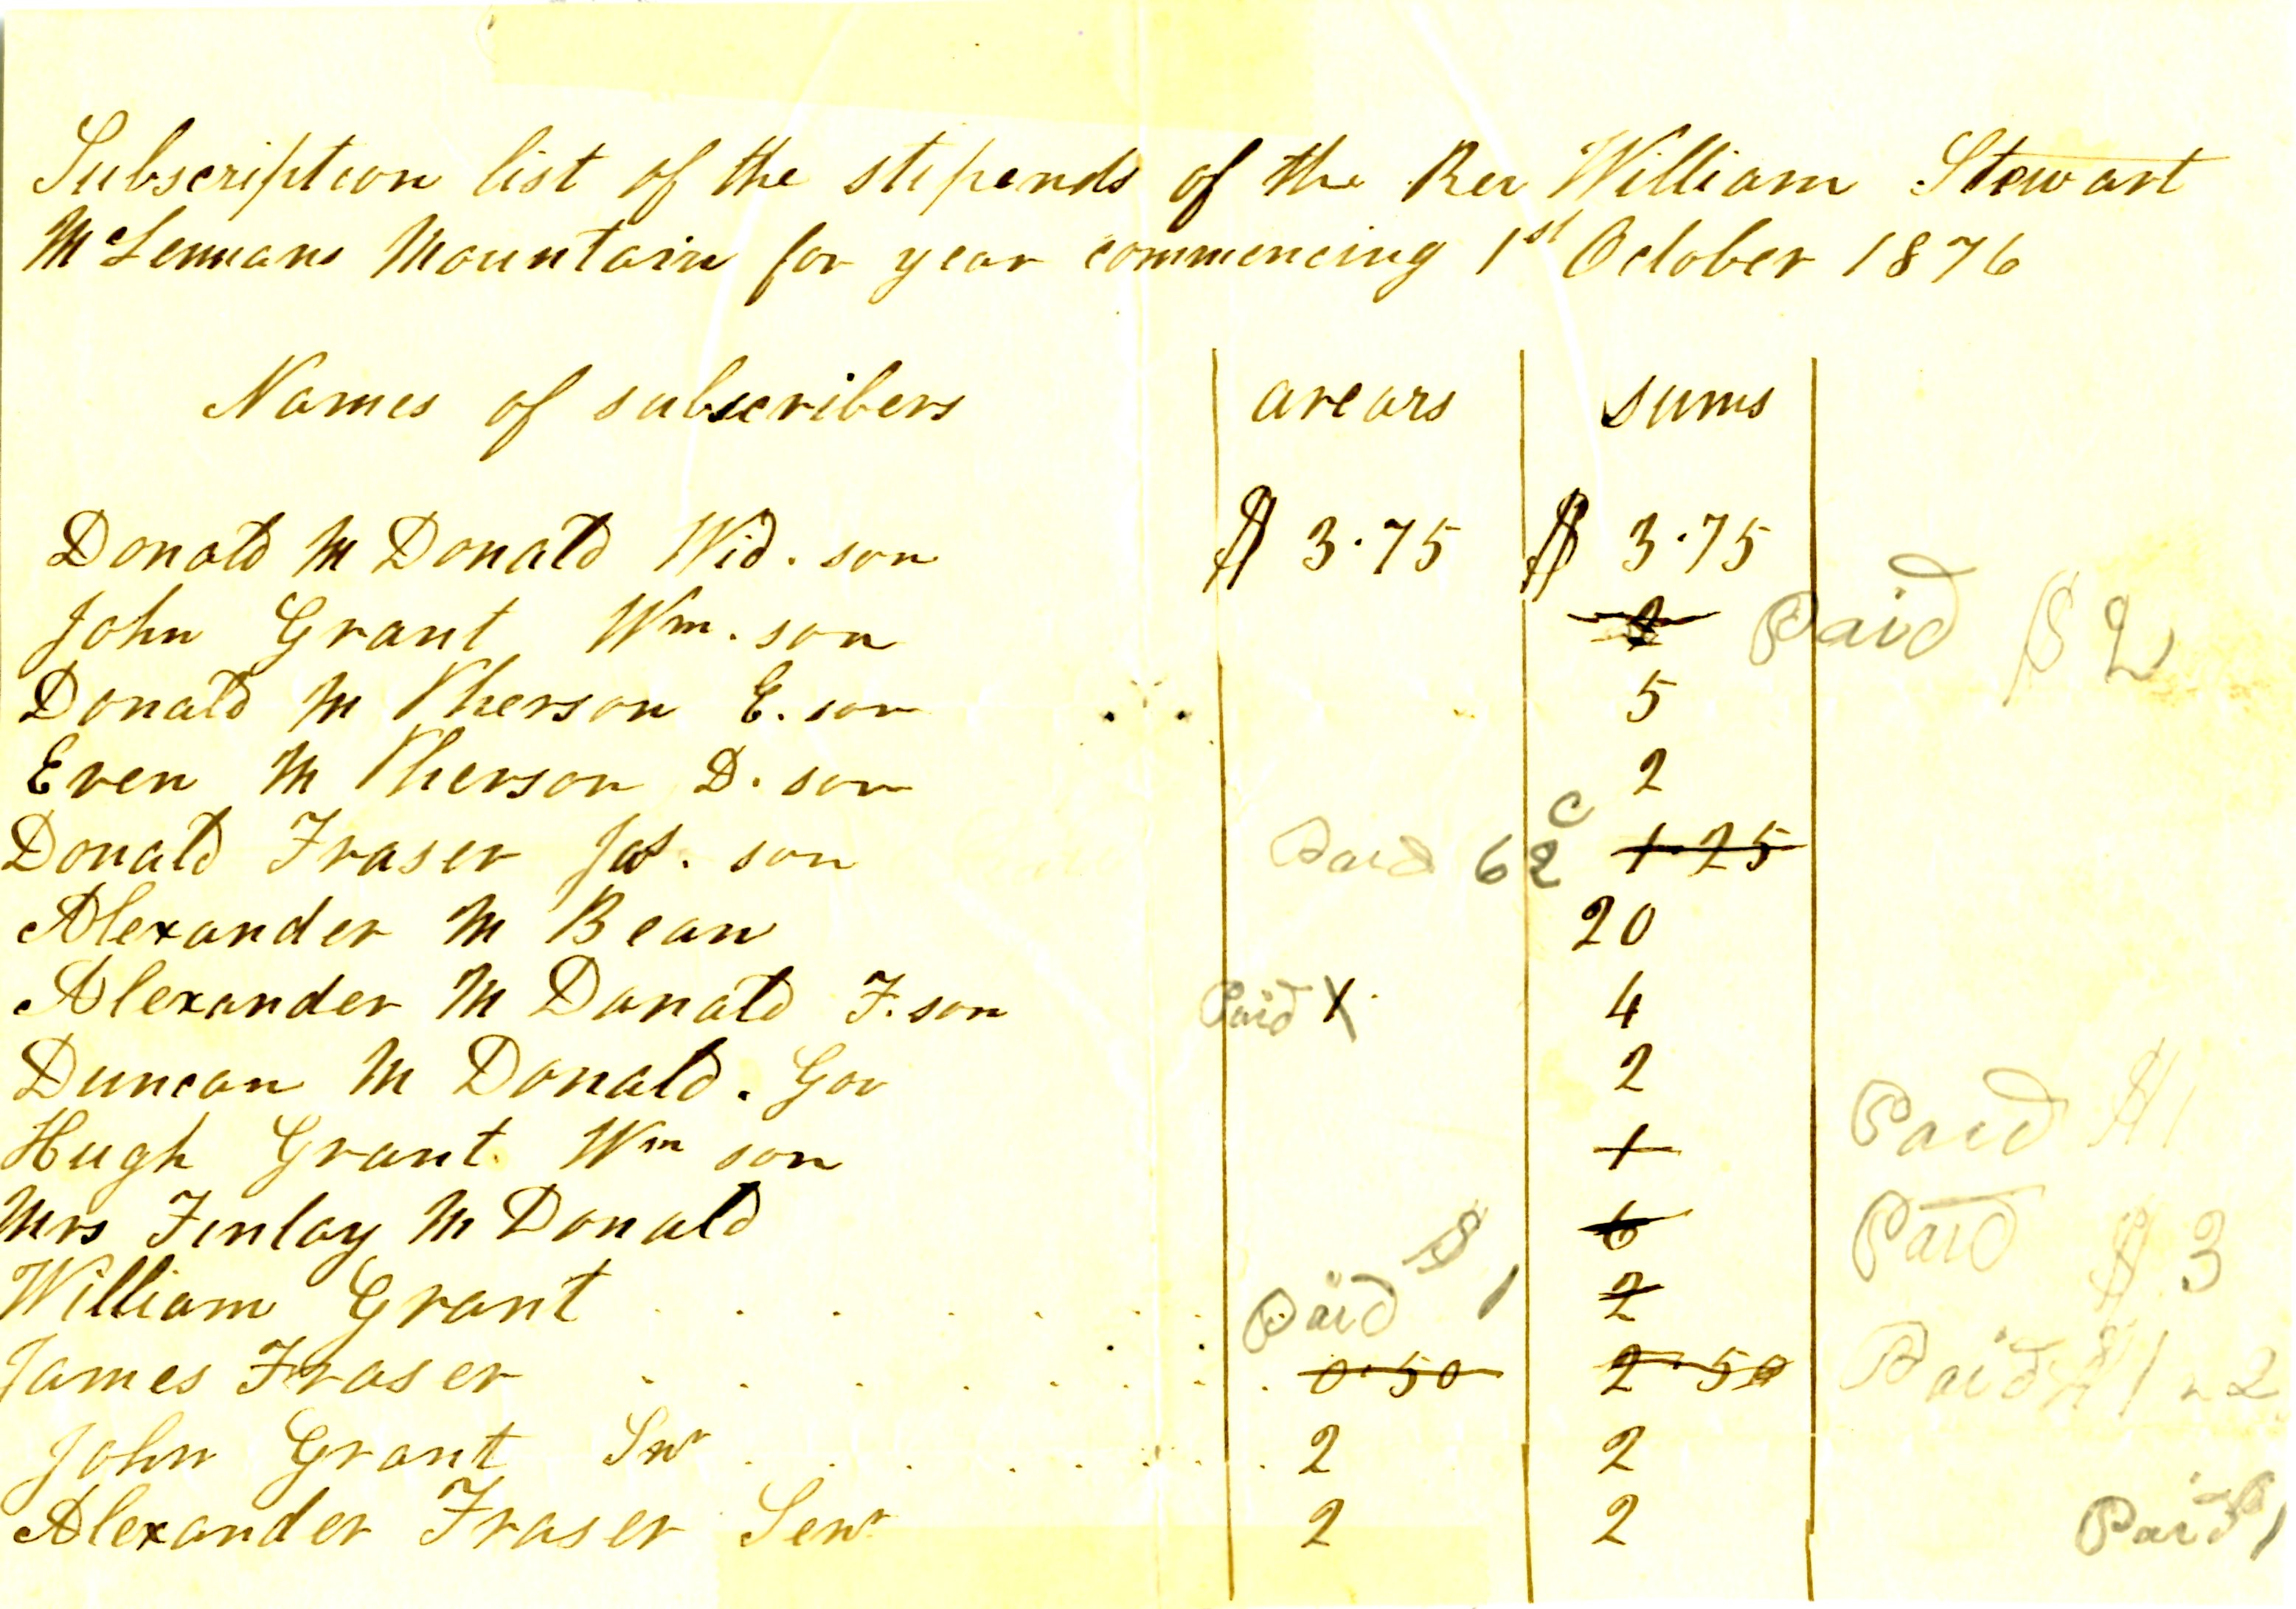 Subscription list of the stipends of the Rev William Stewart
McLennans Mountain for year commencing 1st October 1876
Names of subscribers arears sums
Donald M Donald Wid. son $ 3.75 $ 3.75
John Grant Wm. son 2 Paid $2
Donald M Pherson E. son 5
Even M Pherson D. son 2
Donald Fraser Jas. son Paid 62c 1.25
Alexander M Bean 20
Alexander M Donald F. son Paid 1 4
Duncan M Donald. Gov 2
Hugh Grant Wm son 1 Paid $1
Mrs Finlay M Donald 6 Paid $3
William Grant Paid $1 2
James Fraser 0.50 2.50 Paid $1
John Grant Snr 2 2
Alexander Fraser Senr 2 2 Paid $1